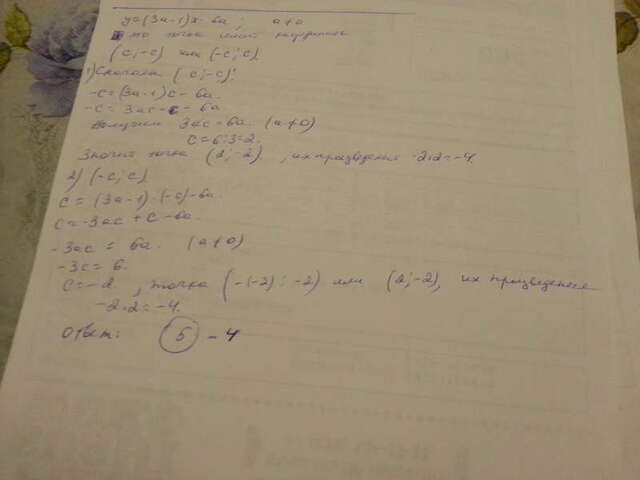 y=(3a-1)x-6a, a≠0
но точка имеет
(c;-c) или (-c;c)
1) Сначала (c;-c)
-c=(3a-1)c-6a
-c=3ac-c-6a
Получим 3ac=6a (a≠0)
c=6:3=2
Значит точка (2;-2), их произведение -2·2=-4
2) (-c;c)
c=(3a-1)(-c)-6a
c=-3ac+c-6a
-3ac=6a. (a≠0)
-3c=6.
c=-2, точка (-(-2);-2) или (2;-2), их произведение
-2·2=-4.
Ответ: (5) -4